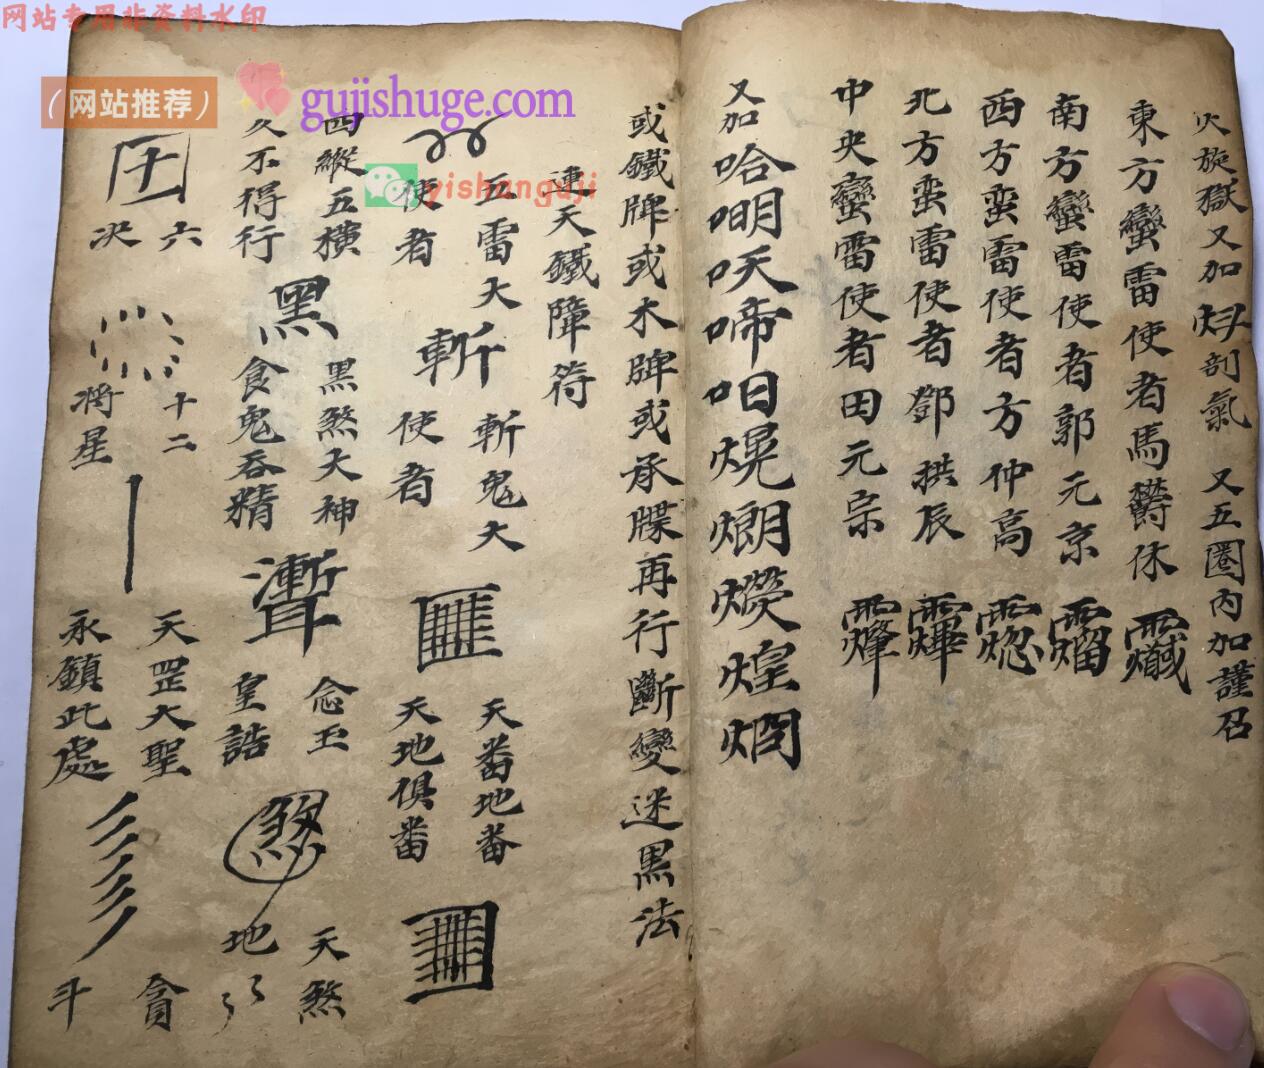 网站专用非资料水印
(网站推荐)
gujishuge.com
yishanguji
火旋獄又加 剖氣 又五圈內加謹召
東方蠻雷使者馬欝休
南方蠻雷使者郭元京
西方蛮雷使者方仲高
北方蛮雷使者鄧拱辰
中央蠻雷使者田元宗
又加哈明呋啼呾熀烺熒煌焵
或鐵牌或木牌或承牒再行斷變迷黑法
連天鐵障符
五雷大使者
斬 斬鬼大使者
天番地番
天地俱番
四縱五橫
久不得行
黑 黑煞大神
食鬼吞精
念玉皇誥
天煞地
六决
十二将星
天罡大聖
永鎮此處
貪斗